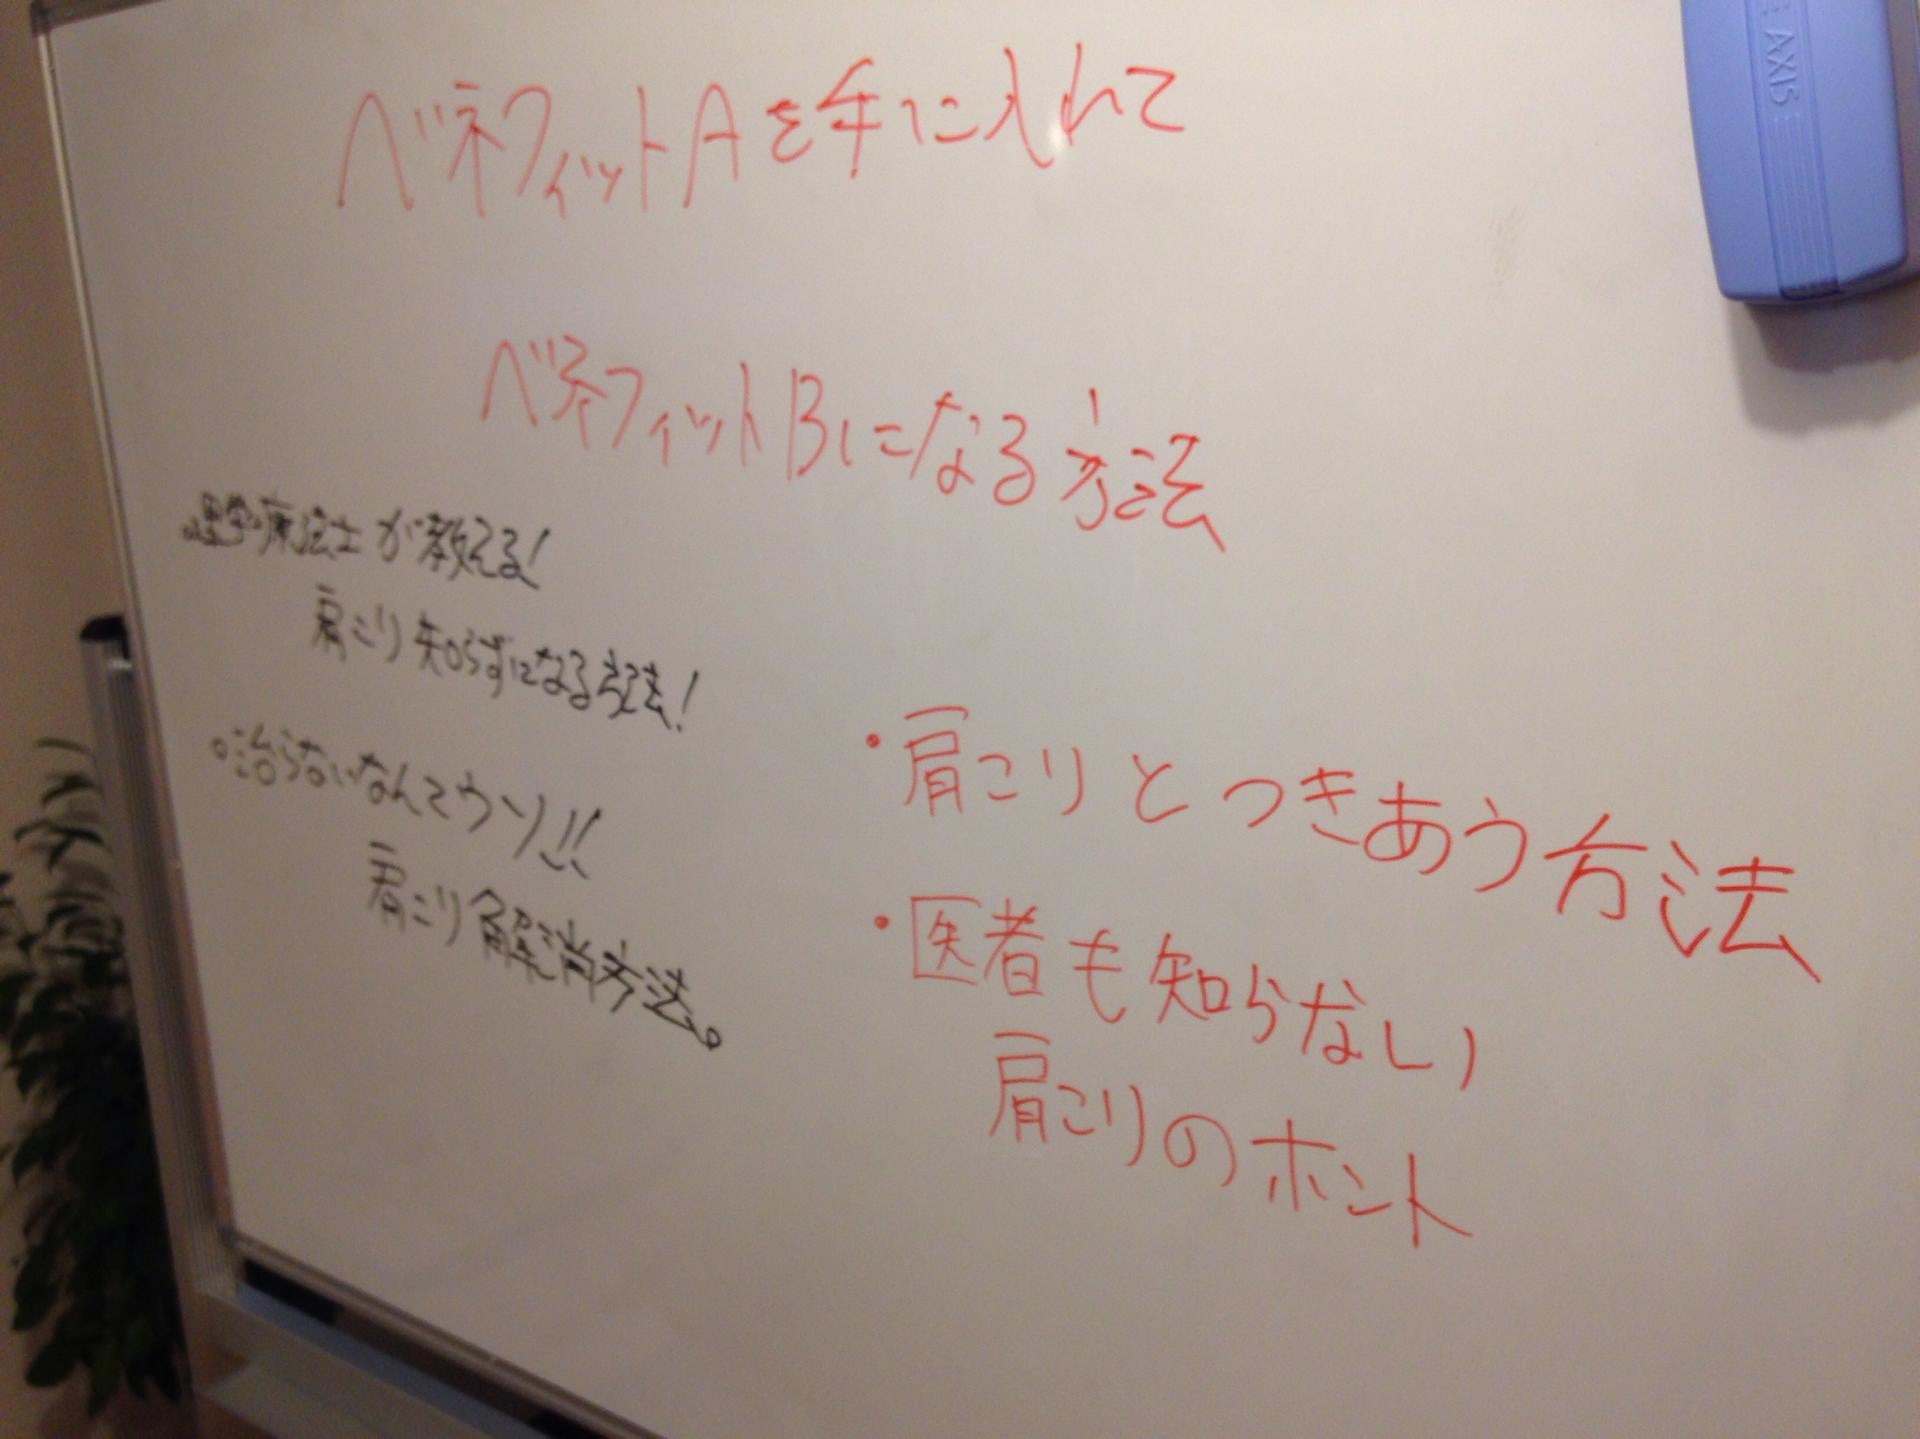 ベネフィットAを手に入れて
ベネフィットBになる方法
・理学療法士が教える!
肩こり知らずになる方法!
・治らないなんてウソ!!
肩こり解消方法。
・肩こりとつきあう方法
・医者も知らない
肩こりのホント
AXIS